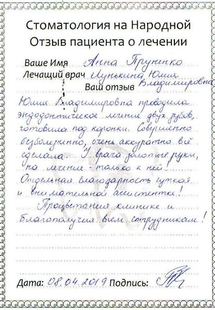 Стоматология на Народной
Отзыв пациента о лечении
Ваше Имя Анна Труненко
Лечащий врач Лунькина Юлия
Ваш отзыв Владимировна
Юлия Владимировна проводила
эндодонтическое лечение двух зубов,
готовила под коронки. Совершенно
безболезненно, очень аккуратно всё
сделала. У врача золотые руки,
на лечение только к ней!
Отдельная благодарность чуткой
и внимательной ассистентке!
Процветания клинике и
благополучия всем сотрудникам!
Дата: 08.04.2019 Подпись: